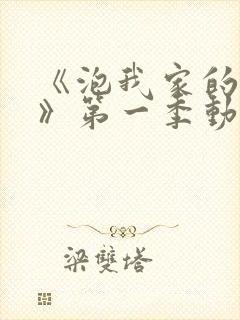 《泡我家的
》第一季動
梁雙塔